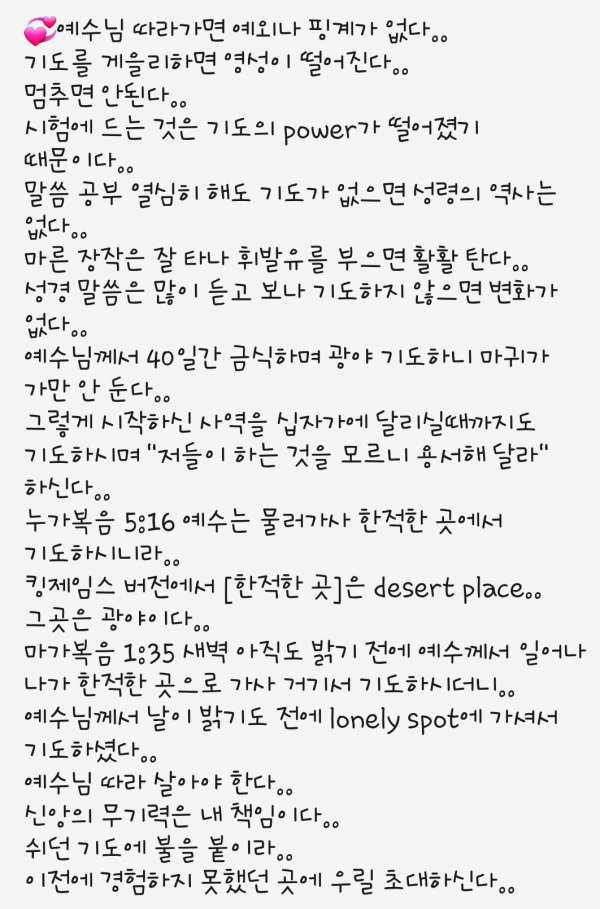 💞예수님 따라가면 예외나 핑계가 없다..
기도를 게을리하면 영성이 떨어진다..
멈추면 안된다..
시험에 드는 것은 기도의 power가 떨어졌기
때문이다..
말씀 공부 열심히 해도 기도가 없으면 성령의 역사는
없다..
마른 장작은 잘 타나 휘발유를 부으면 활활 탄다..
성경 말씀은 많이 듣고 보나 기도하지 않으면 변화가
없다..
예수님께서 40일간 금식하며 광야 기도하니 마귀가
가만 안 둔다..
그렇게 시작하신 사역을 십자가에 달리실때까지도
기도하시며 "저들이 하는 것을 모르니 용서해 달라"
하신다..
누가복음 5:16 예수는 물러가사 한적한 곳에서
기도하시니라..
킹제임스 버전에서 [한적한 곳]은 desert place..
그곳은 광야이다..
마가복음 1:35 새벽 아직도 밝기 전에 예수께서 일어나
나가 한적한 곳으로 가사 거기서 기도하시더니..
예수님께서 날이 밝기도 전에 lonely spot에 가셔서
기도하셨다..
예수님 따라 살아야 한다..
신앙의 무기력은 내 책임이다..
쉬던 기도에 불을 붙이라..
이전에 경험하지 못했던 곳에 우릴 초대하신다..